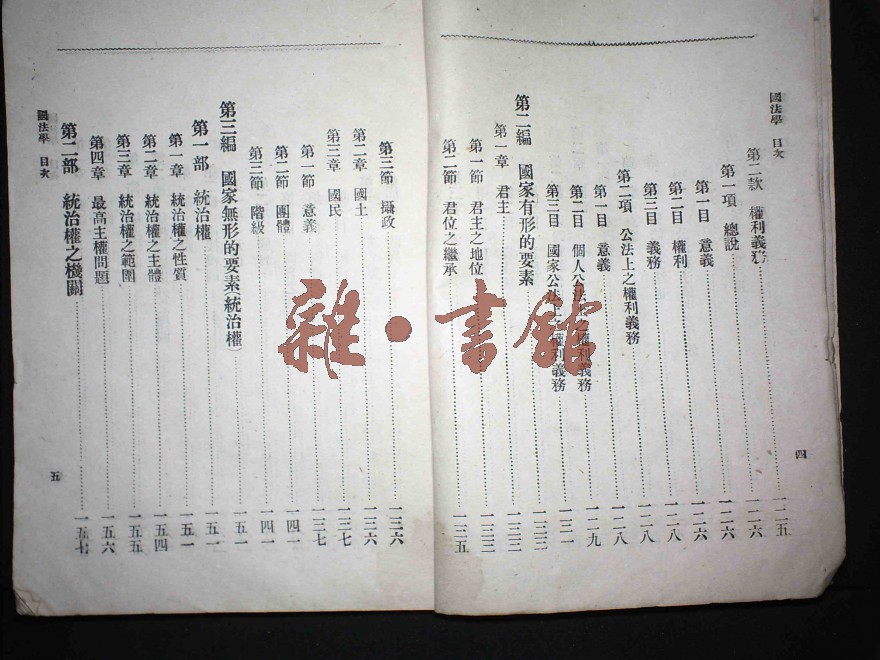 國法學 目次
第二款 權利義務……一二五
第一項 總說……一二六
第一目 意義……一二六
第二目 權利……一二六
第三目 義務……一二八
第二項 公法上之權利義務……一二八
第一目 意義……一二八
第二目 個人公法上之權利義務……一二九
第三目 國家公法上之權利義務……一三一
第二編 國家有形的要素……一三三
第一章 君主……一三三
第一節 君主之地位……一三三
第二節 君位之繼承……一三五
四
第三節 攝政……一三六
第二章 國土……一三六
第三章 國民……一三七
第一節 意義……一三七
第二節 團體……一四一
第三節 階級……一四一
第三編 國家無形的要素(統治權)……一五一
第一部 統治權……一五一
第一章 統治權之性質……一五一
第二章 統治權之主體……一五四
第三章 統治權之範圍……一五五
第四章 最高主權問題……一五六
第二部 統治權之機關……一五七
國法學 目次
五
雜·書館